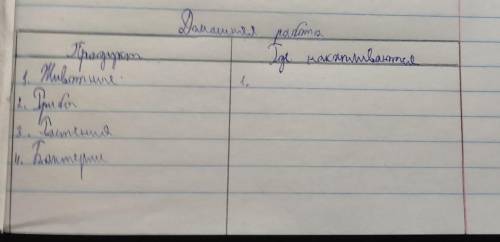 Домашняя работа
Продукт Где накапливаются
1. Животные. 1.
2. Грибы
3. Растения
4. Бактерии